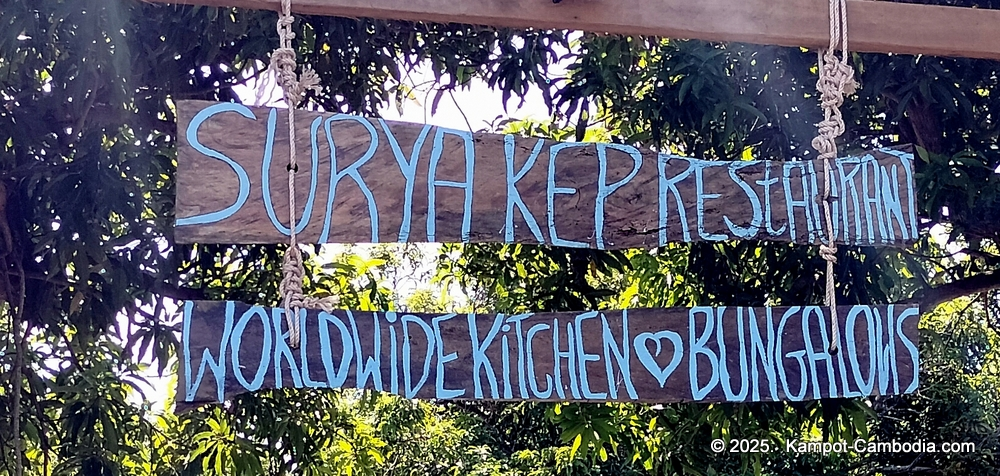 SURYA KEP RESTAURANT
WORLDWiDE KiTCHEN ♡ BUNGALOWS
© 2025. Kampot-Cambodia.com